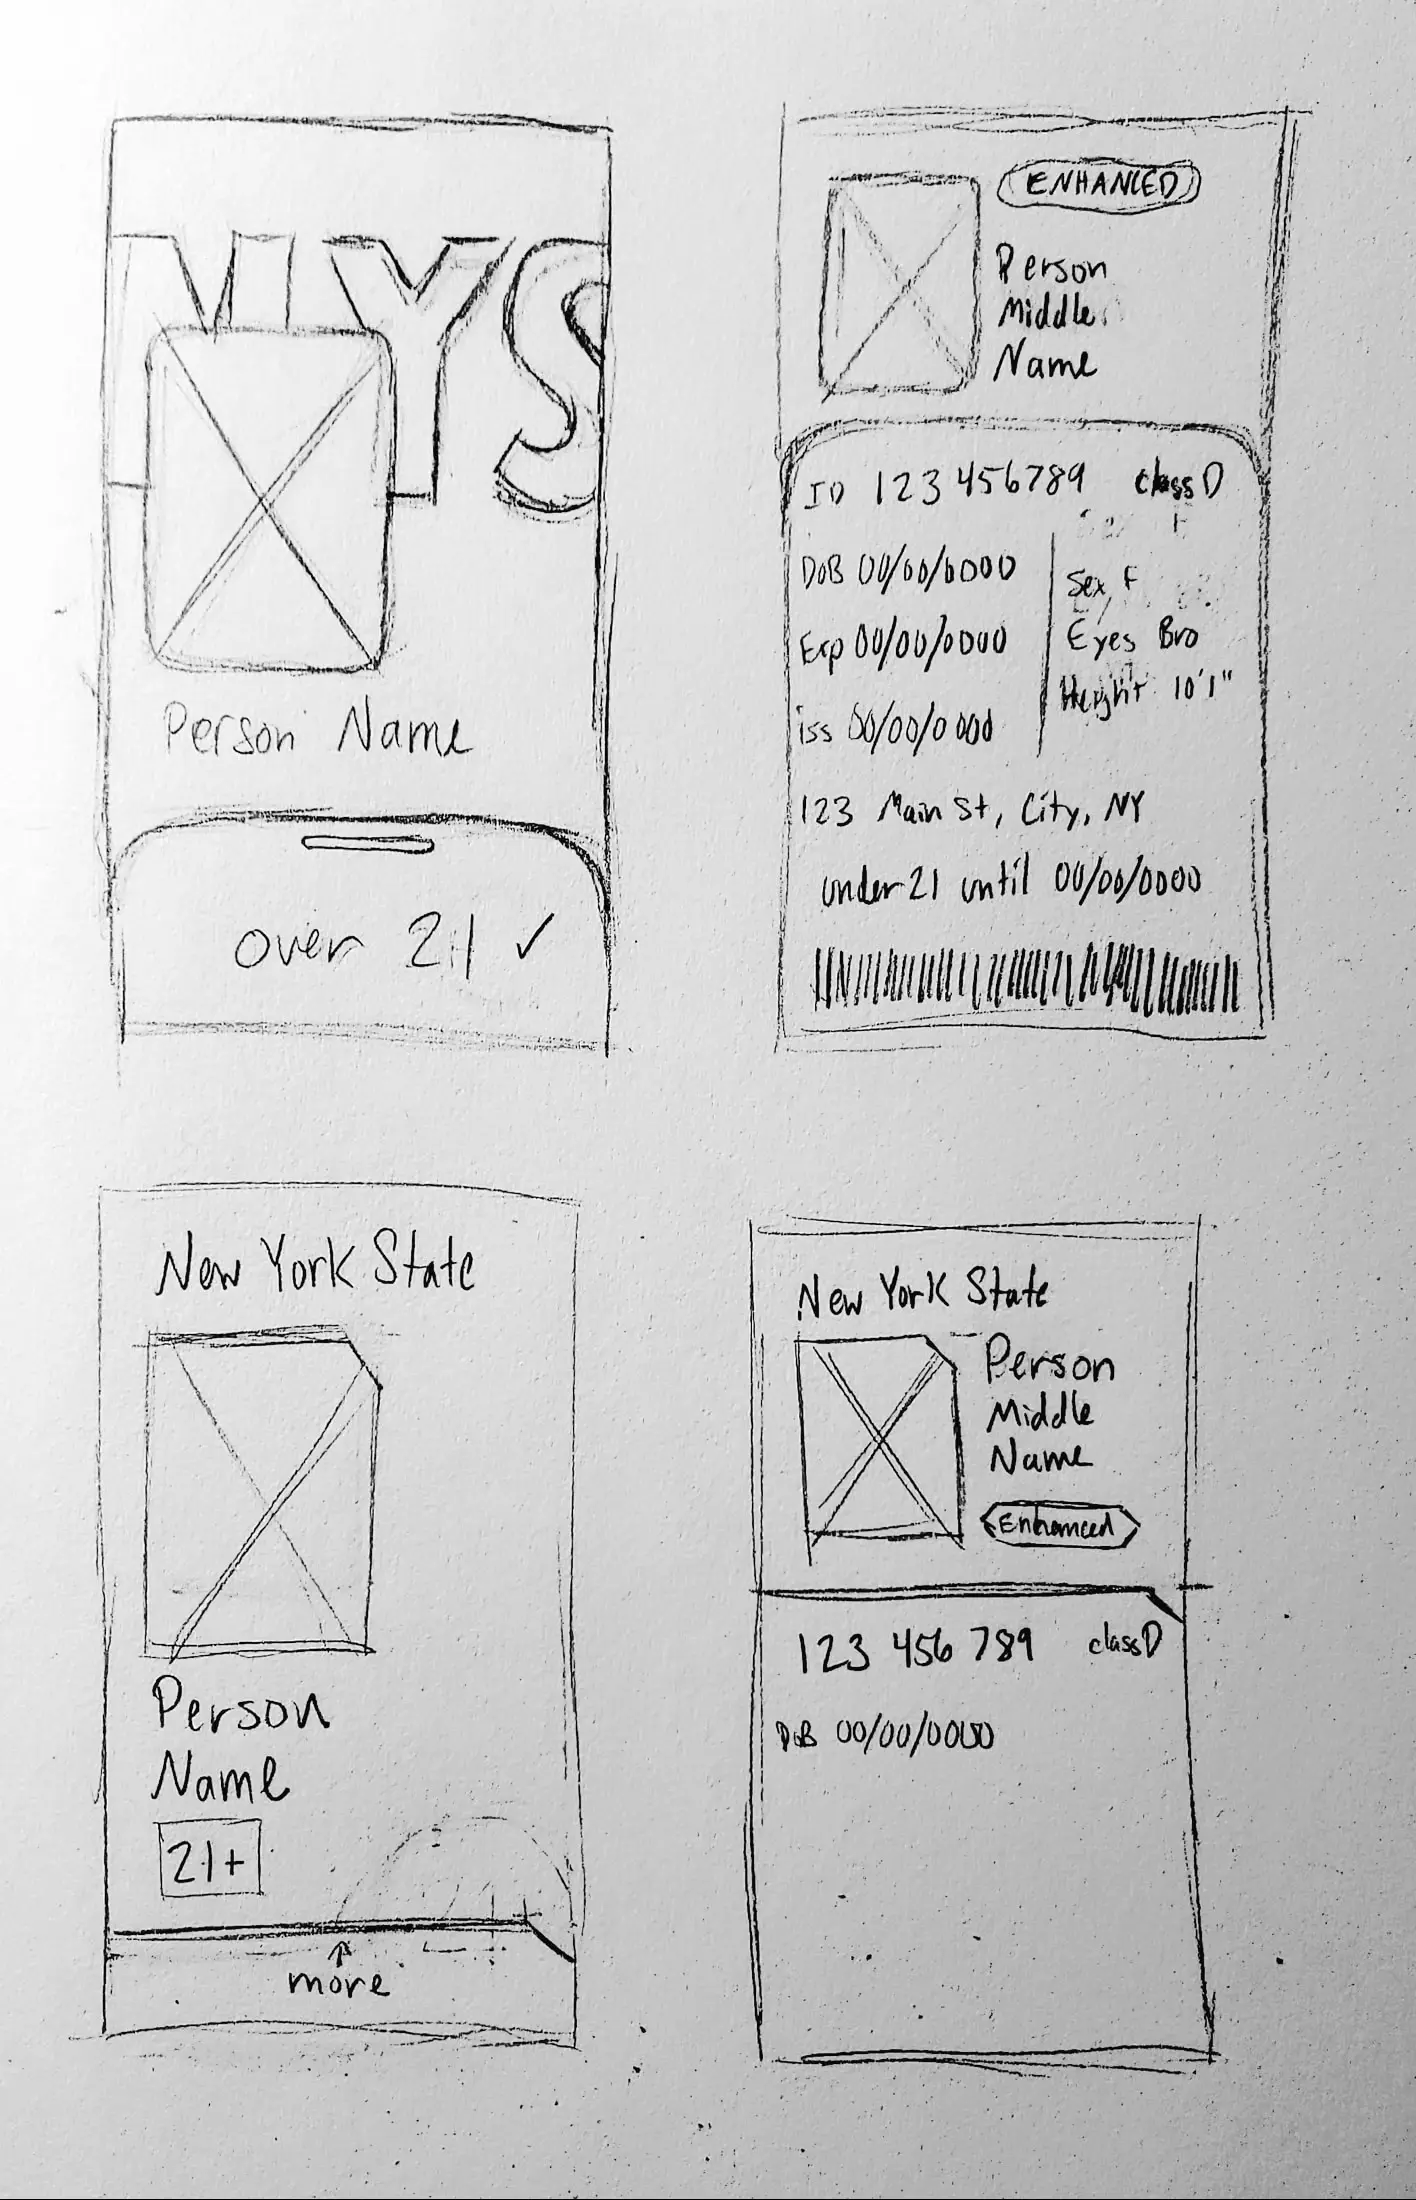 NYS
Person Name
over 21 ✓
ENHANCED
Person
Middle
Name
ID 123 456789 class D
DOB 00/00/0000
Exp 00/00/0000
iss 00/00/0000
Sex F
Eyes Bro
Height 10'1"
123 Main St, City, NY
under 21 until 00/00/0000
New York State
Person
Name
21+
↑
more
New York State
Person
Middle
Name
Enhanced
123 456 789 class D
DOB 00/00/0000